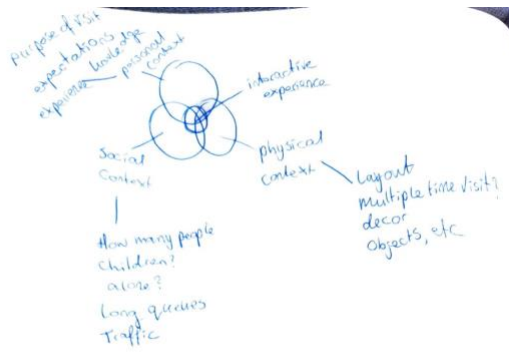 purpose of visit
expectations
knowledge
experience
personal
context
interactive
experience
Social
Context
physical
context
Layout
Multiple time visit?
decor
Objects, etc
How many people
Children?
alone?
Long queues
Traffic